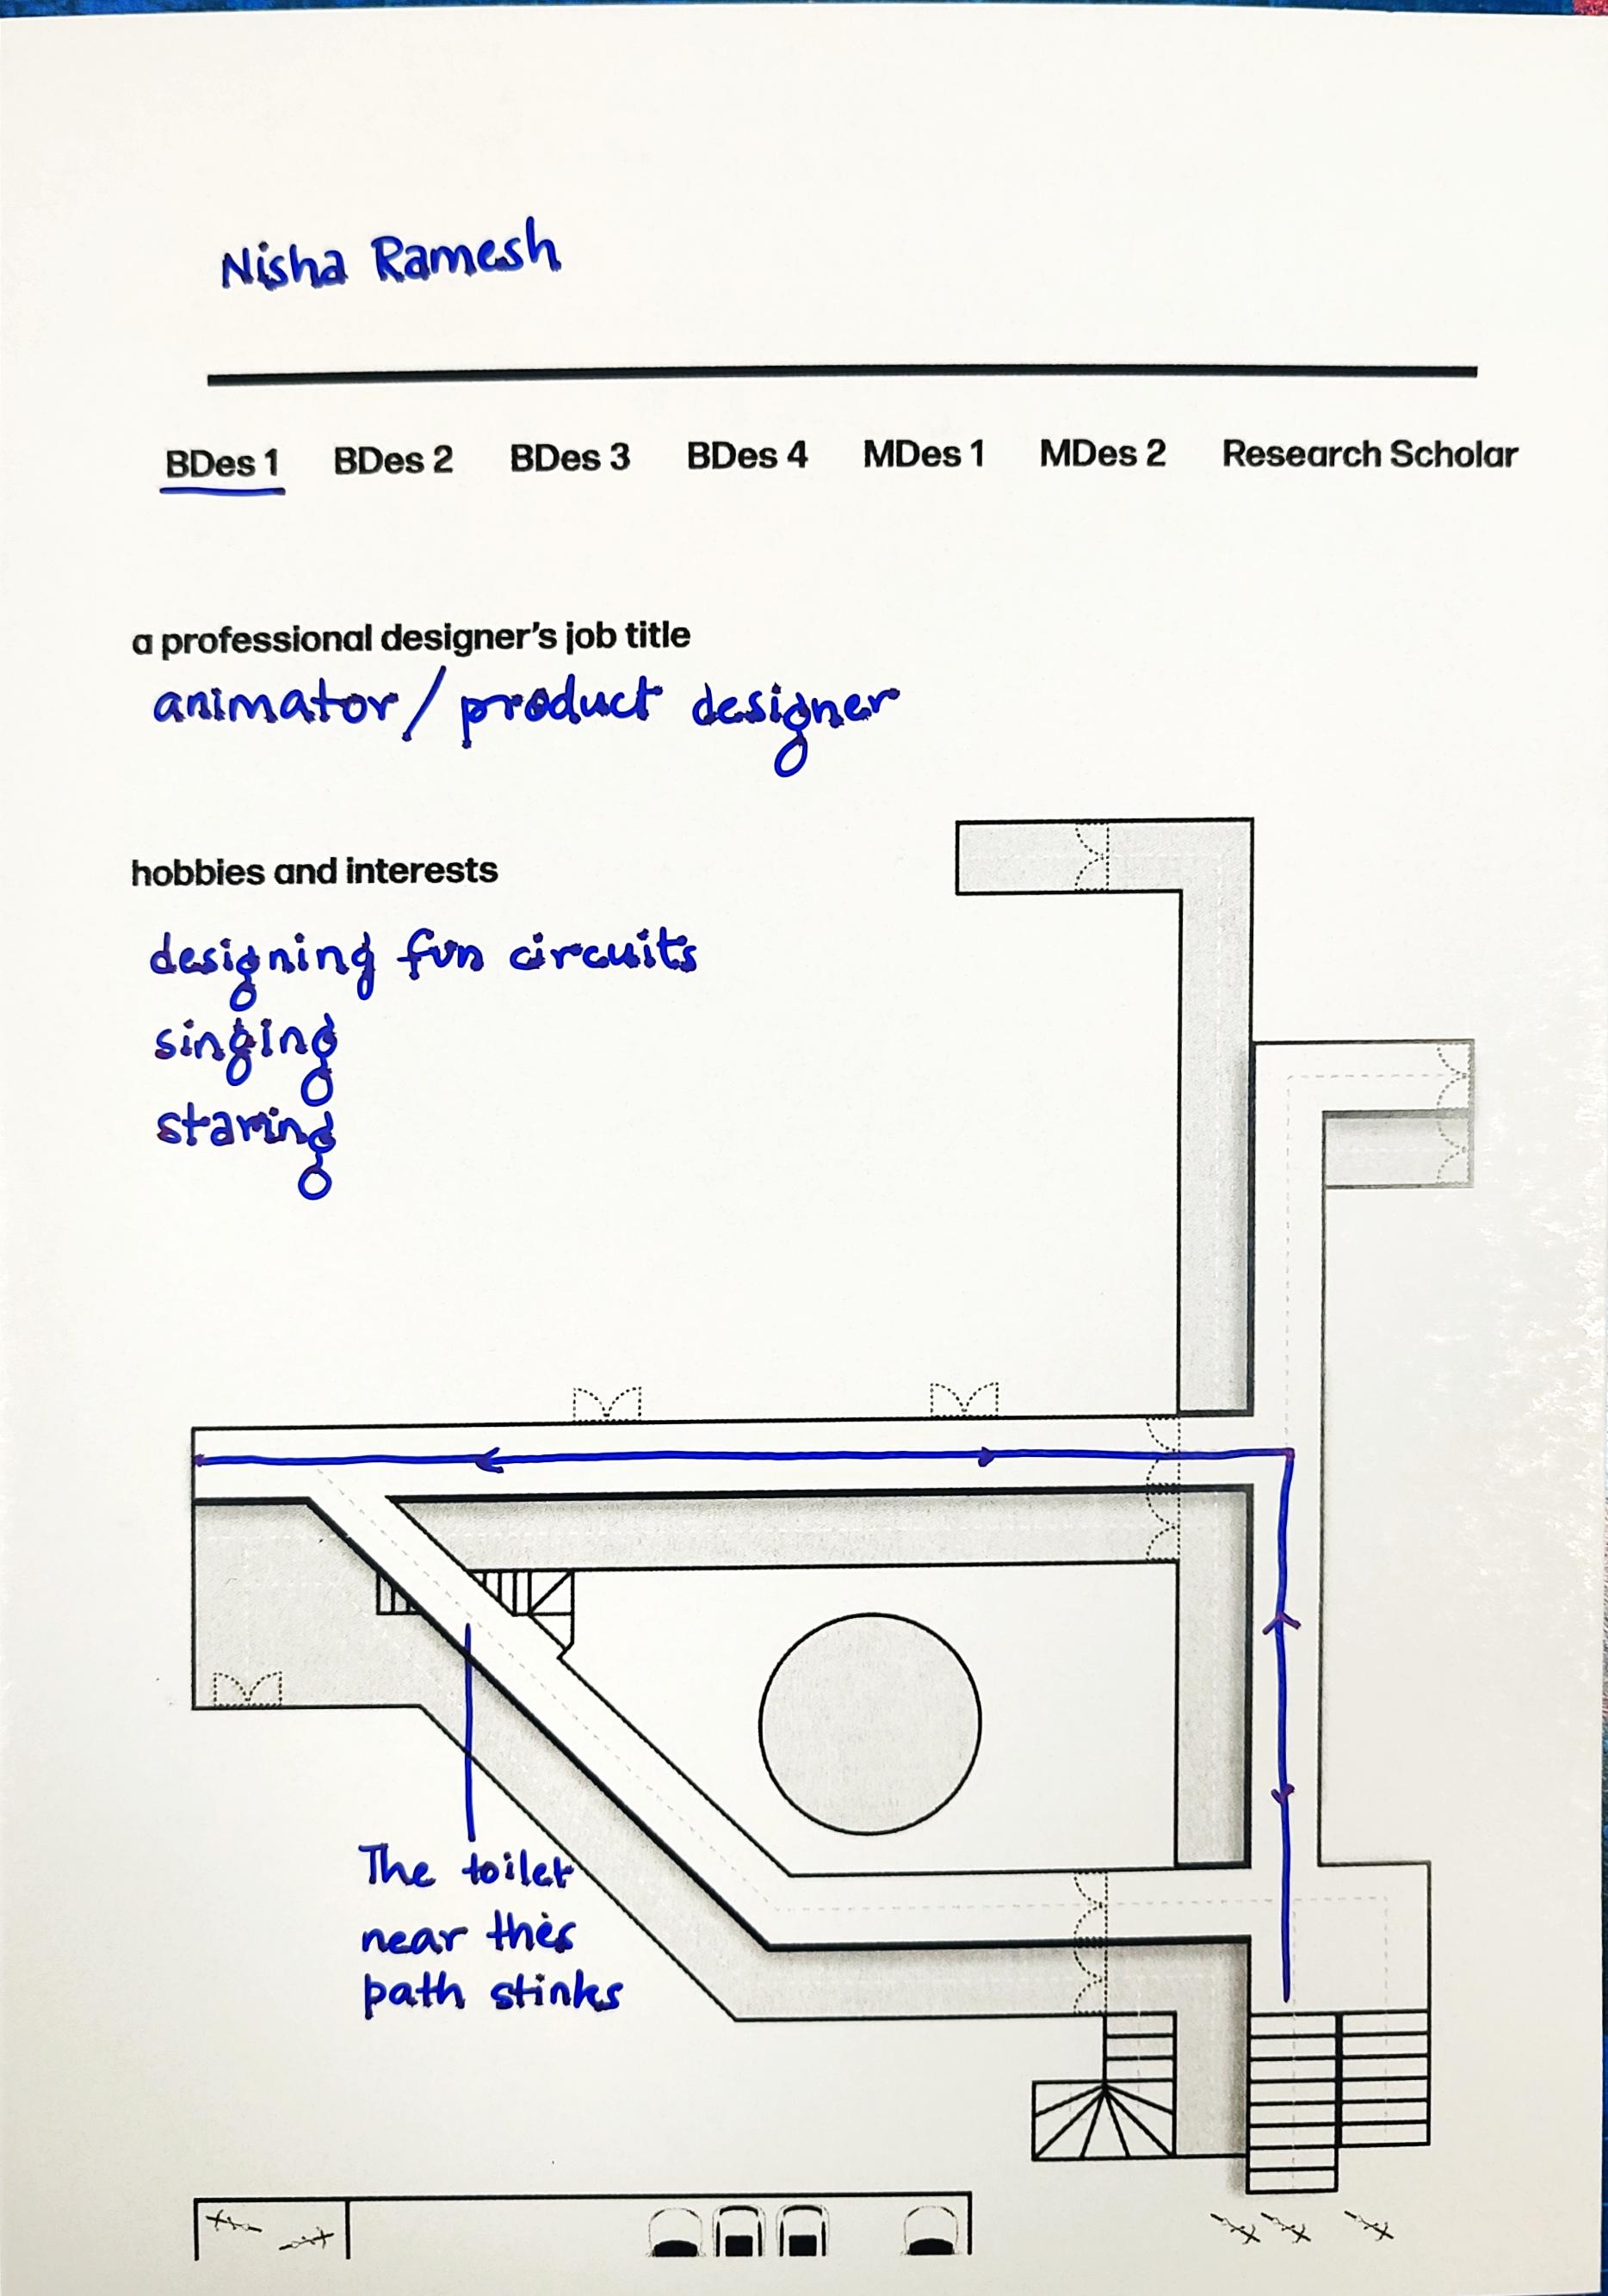 Nisha Ramesh
BDes 1 BDes 2 BDes 3 BDes 4 MDes 1 MDes 2 Research Scholar
a professional designer's job title
animator / product designer
hobbies and interests
designing fun circuits
singing
staring
The toilet
near this
path stinks